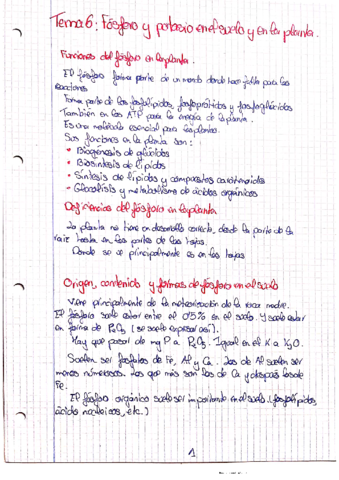 Tema 6: Fósforo y potasio en el suelo y en la planta.
Funciones del fósforo en la planta.
El fósforo forma parte de un modo donde hace falta para las
reacciones
Forma parte de los fosfolípidos, fosfoprótidos y fosfoglúcidos
También en los ATP para la energía de la planta.
Es una molécula esencial para las plantas.
Sus funciones en la planta son:
- Biogénesis de glúcidos
- Biosíntesis de lípidos
- Síntesis de lípidos y compuestos carotenoides
- Glucólisis y metabolismo de ácidos orgánicos
Deficiencias del fósforo en la planta
La planta no tiene un desarrollo correcto, desde la parte de la
raíz hasta en las partes de las hojas.
Donde se ve principalmente es en las hojas
Origen, contenido y formas de fósforo en el suelo
Viene principalmente de la meteorización de la roca madre.
El fósforo suele estar entre el 0'5% en el suelo. Y suele estar
en forma de P2O5 (se suele expresar así).
Hay que pasar de mg P a P2O5. Igual en el K a K2O.
Suelen ser fosfatos de Fe, Al y Ca. Los de Al suelen ser
menos numerosos. Los que más son los de Ca y después los de
Fe.
El fósforo orgánico suele ser importante en el suelo. (fosfolípidos,
ácidos nucleicos, etc.)
1